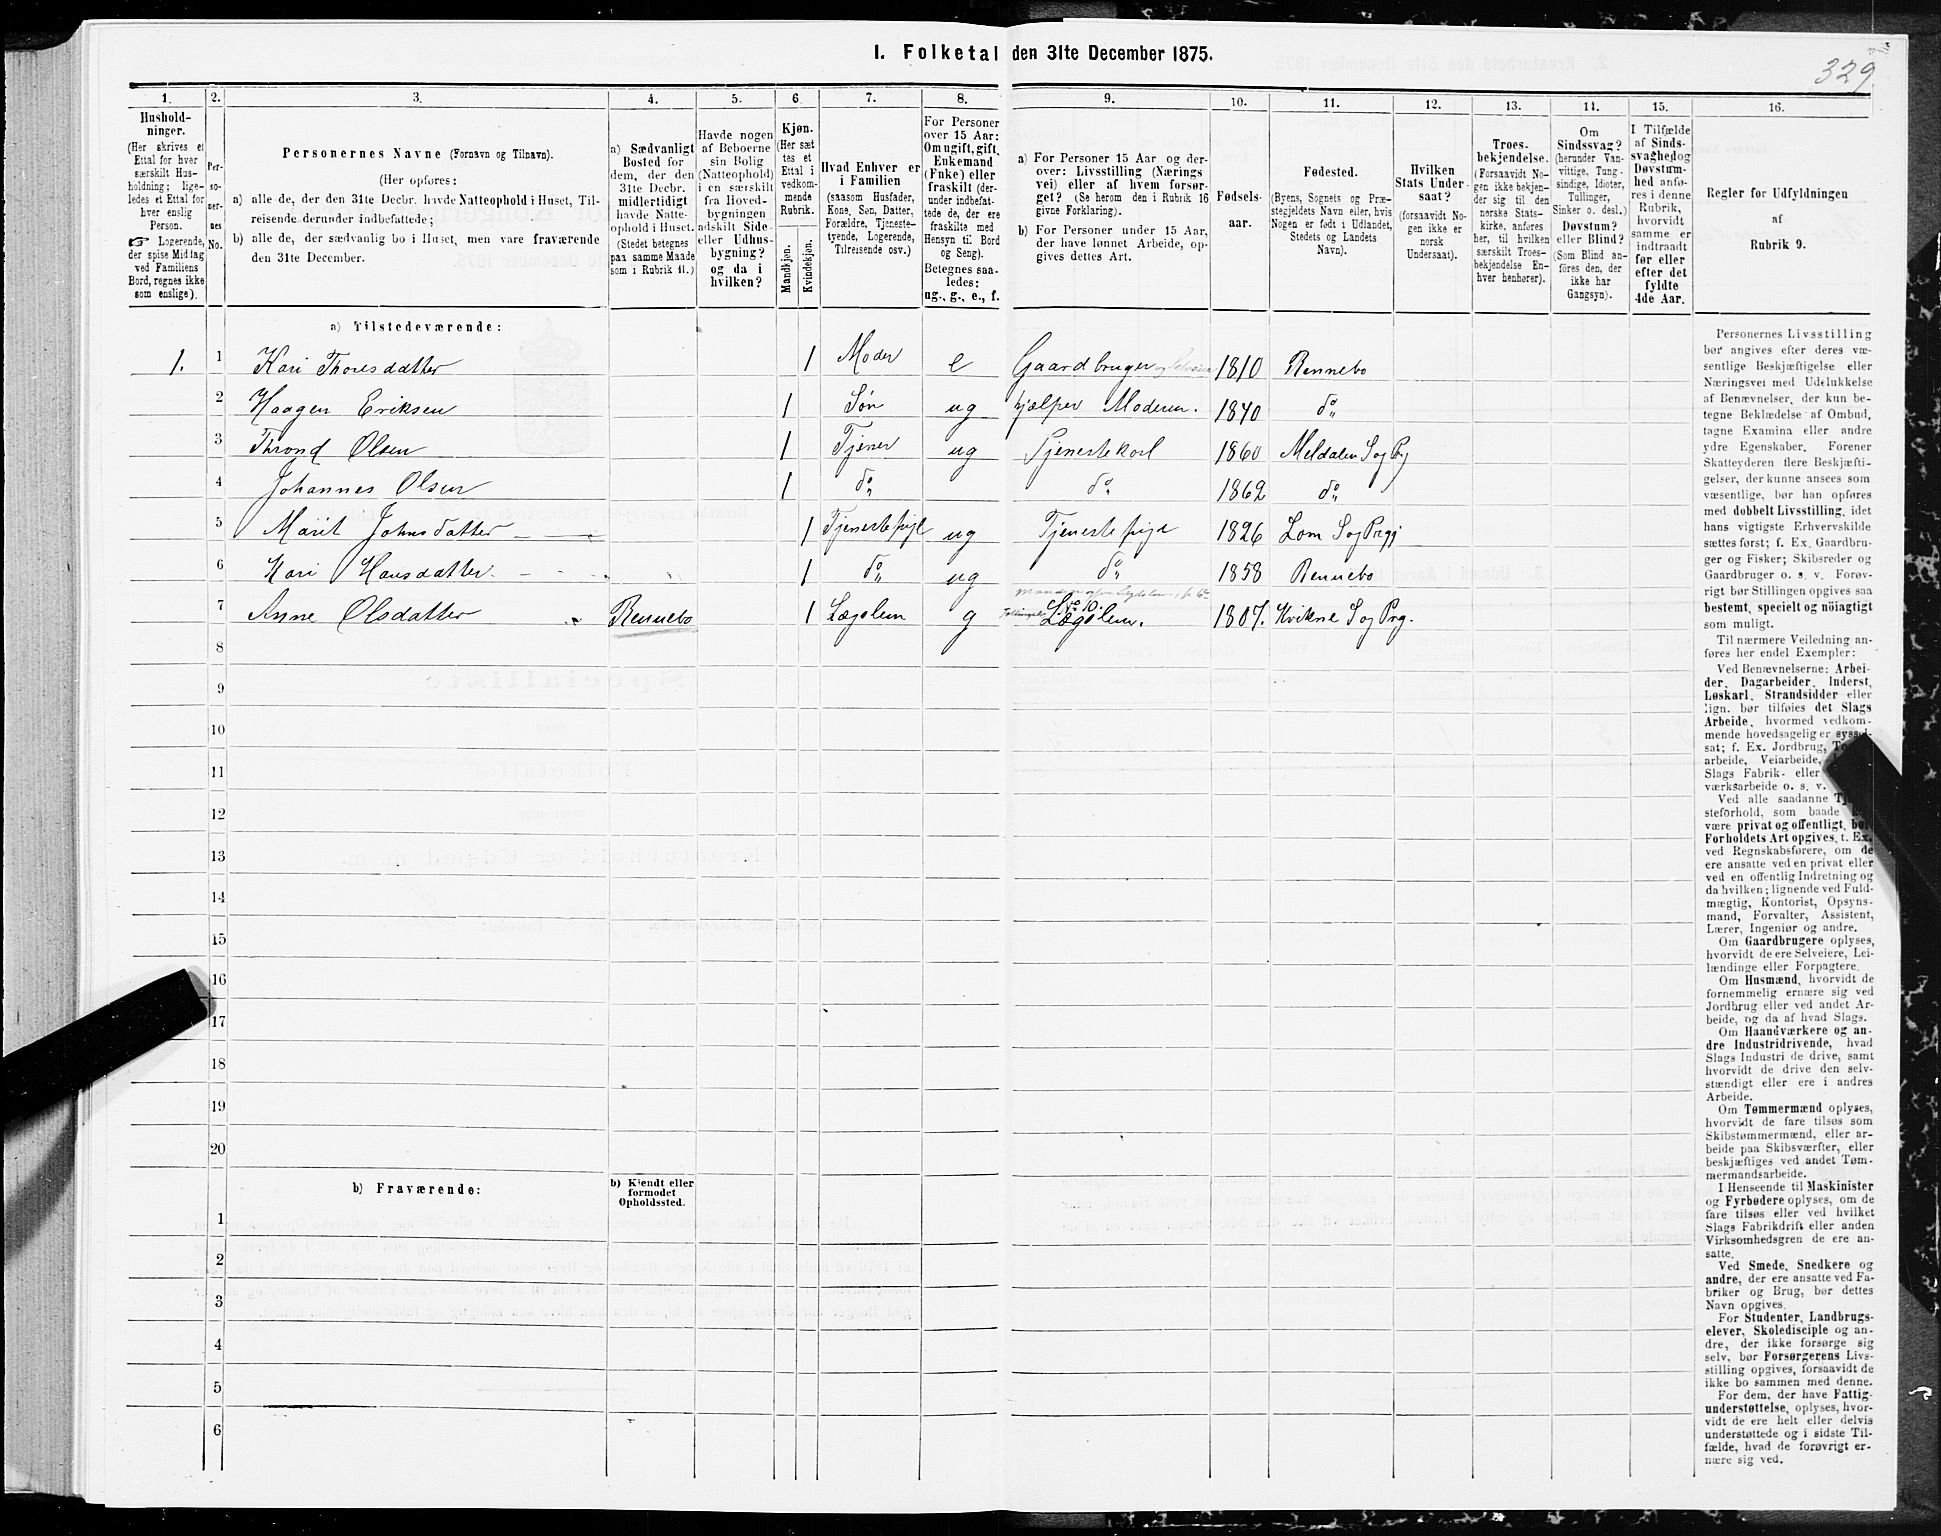 I. Folketal den 31te December 1875.
329
1. 2. 3. 4. 5. 6. 7. 8. 9. 10. 11. 12. 13. 14. 15. 16.
Hushold-
ninger.
(Her skrives et
Ettal for hver
særskilt Hus-
holdning; lige-
ledes et Ettal for
hver enslig
Person.
☞ Logerende,
der spise Middag
ved Familiens
Bord, regnes ikke
som enslige).
Per-
so-
ner-
nes
No.
Personernes Navne (Fornavn og Tilnavn).
(Her opføres:
a) alle de, der den 31te Decbr. havde Natteophold i Huset, Til-
reisende derunder indbefattede;
b) alle de, der sædvanlig bo i Huset, men vare fraværende
den 31te December.
a) Sædvanligt
Bosted for
dem, der den
31te Decbr.
midlertidigt
havde Natte-
ophold i Huset.
(Stedet betegnes
paa samme Maade
som i Rubrik 11.)
Havde nogen
af Beboerne
sin Bolig
(Natteophold)
i en særskilt
fra Hoved-
bygningen
adskilt Side-
eller Udhus-
bygning?
og da i
hvilken?
Kjøn.
(Her sæt
tes et
Ettal i
vedkom-
mende
Rubrik.
Mandkjøn.
Kvindekjøn.
Hvad Enhver er
i Familien
(saasom Husfader,
Kone, Søn, Datter,
Forældre, Tjeneste-
tyende, Logerende,
Tilreisende osv.)
For Personer
over 15 Aar:
Om ugift, gift,
Enkemand
(Enke) eller
fraskilt (der-
under indbefat-
tede de, der ere
fraskilte med
Hensyn til Bord
og Seng).
Betegnes saa-
ledes:
ug., g., e., f.
a) For Personer 15 Aar og der-
over: Livsstilling (Nærings
vei) eller af hvem forsør-
get? (Se herom den i Rubrik 16
givne Forklaring).
b) For Personer under 15 Aar,
der have lønnet Arbeide, op-
gives dettes Art.
Fødsels-
aar.
Fødested.
(Byens, Sognets og Præ-
stegjeldets Navn eller, hvis
Nogen er født i Udlandet,
Stedets og Landets
Navn).
Hvilken
Stats Under-
saat?
(forsaavidt No-
gen ikke er
norsk
Undersaat).
Troes-
bekjendelse.
(Forsaavidt No-
gen ikke bekjen-
der sig til den
norske Stats-
kirke, anføres
her, til hvilken
særskilt Troes-
bekjendelse En-
hver henhører).
Om
Sindssvag?
(herunder Van-
vittige, Tung-
sindige, Idioter,
Tullinger,
Sinker o. desl.)
Døvstum?
eller Blind?
(Som Blind an-
føres den, der
ikke har
Gangsyn).
I Tilfælde
af Sinds-
svaghed og
Døvstum-
hed anfø-
res i denne
Rubrik,
hvorvidt
samme er
indtraadt
før eller
efter det
fyldte
4de Aar.
Regler for Udfyldningen
af
Rubrik 9.
a) Tilstedeværende:
1. 1 Kari Thoresdatter 1 Moder e Gaardbruger 1810 Rennebo
2 Haagen Eriksen 1 Søn ug hjælper Moderen. 1840 do
3 Thrond Olsen 1 Tjener ug Tjenestekarl 1860 Meldalen S og Pg
4 Johannes Olsen 1 do do 1862 do
5 Marit Johnsdatter 1 Tjenestepige ug Tjenestepige 1826 Lom S og Prgj
6 Kari Hansdatter 1 do ug do 1858 Rennebo
7 Anne Olsdatter Rennebo 1 Lægslem g Lægslem. 1807. Kvikne S og Prg.
8
9
10
11
12
13
14
15
16
17
18
19
20
b) Fraværende:
b) Kjendt eller
formodet
Opholdssted.
1
2
3
4
5
6
Personernes Livsstilling
bør angives efter deres væ-
sentlige Beskjæftigelse eller
Næringsvei med Udelukkelse
af Benævnelser, der kun be-
tegne Beklædelse af Ombud,
tagne Examina eller andre
ydre Egenskaber. Forener
Skatteyderen flere Beskjæfti-
gelser, der kunne ansees som
væsentlige, bør han opføres
med dobbelt Livsstilling, idet
hans vigtigste Erhvervskilde
sættes først; f. Ex. Gaardbru-
ger og Fisker; Skibsreder og
Gaardbruger o. s. v. Forøv-
rigt bør Stillingen opgives saa
bestemt, specielt og nöiagtigt
som muligt.
Til nærmere Veiledning an-
føres her endel Exempler:
Ved Benævnelserne: Arbei-
der, Dagarbeider, Inderst,
Løskarl, Strandsidder eller
lign. bør tilføies det Slags
Arbeide, hvormed vedkom-
mende hovedsagelig er syssel-
sat; f. Ex. Jordbrug,
arbeide, Veiarbeide,
Slags Fabrik- eller
værksarbeide o. s. v.
Ved alle saadanne
steforhold, som baade
være privat og offentligt, bør
Forholdets Art opgives, t. Ex.
ved Regnskabsførere, om de
ere ansatte ved en privat eller
ved en offentlig Indretning og
da hvilken; lignende ved Fuld-
mægtig, Kontorist, Opsyns-
mand, Forvalter, Assistent,
Lærer, Ingeniør og andre.
Om Gaardbrugere oplyses,
hvorvidt de ere Selveiere, Lei-
lændinge eller Forpagtere.
Om Husmænd, hvorvidt de
fornemmelig ernære sig ved
Jordbrug eller ved andet Ar-
beide, og da af hvad Slags.
Om Haandværkere og an-
dre Industridrivende, hvad
Slags Industri de drive, samt
hvorvidt de drive den selv-
stændigt eller ere i andres
Arbeide.
Om Tømmermænd oplyses,
hvorvidt de fare tilsøs som
Skibstømmermænd, eller ar-
beide paa Skibsværfter, eller
beskjæftiges ved andet Tøm-
mermandsarbeide.
I Henseende til Maskinister
og Fyrbødere oplyses, om de
fare tilsøs eller ved hvilket
Slags Fabrikdrift eller anden
Virksomhedsgren de ere an-
satte.
Ved Smede, Snedkere og
andre, der ere ansatte ved Fa-
briker og Brug, bør dettes
Navn opgives.
For Studenter, Landbrugs-
elever, Skoledisciple og an-
dre, der ikke forsørge sig
selv, bør Forsørgerens Livs-
stilling opgives, forsaavidt de
ikke bo sammen med denne.
For dem, der have Fattig-
understøttelse, oplyses, hvor-
vidt de ere helt eller delvis
understøttede og i sidste Til-
fælde, hvad de forøvrigt er-
nære sig ved.